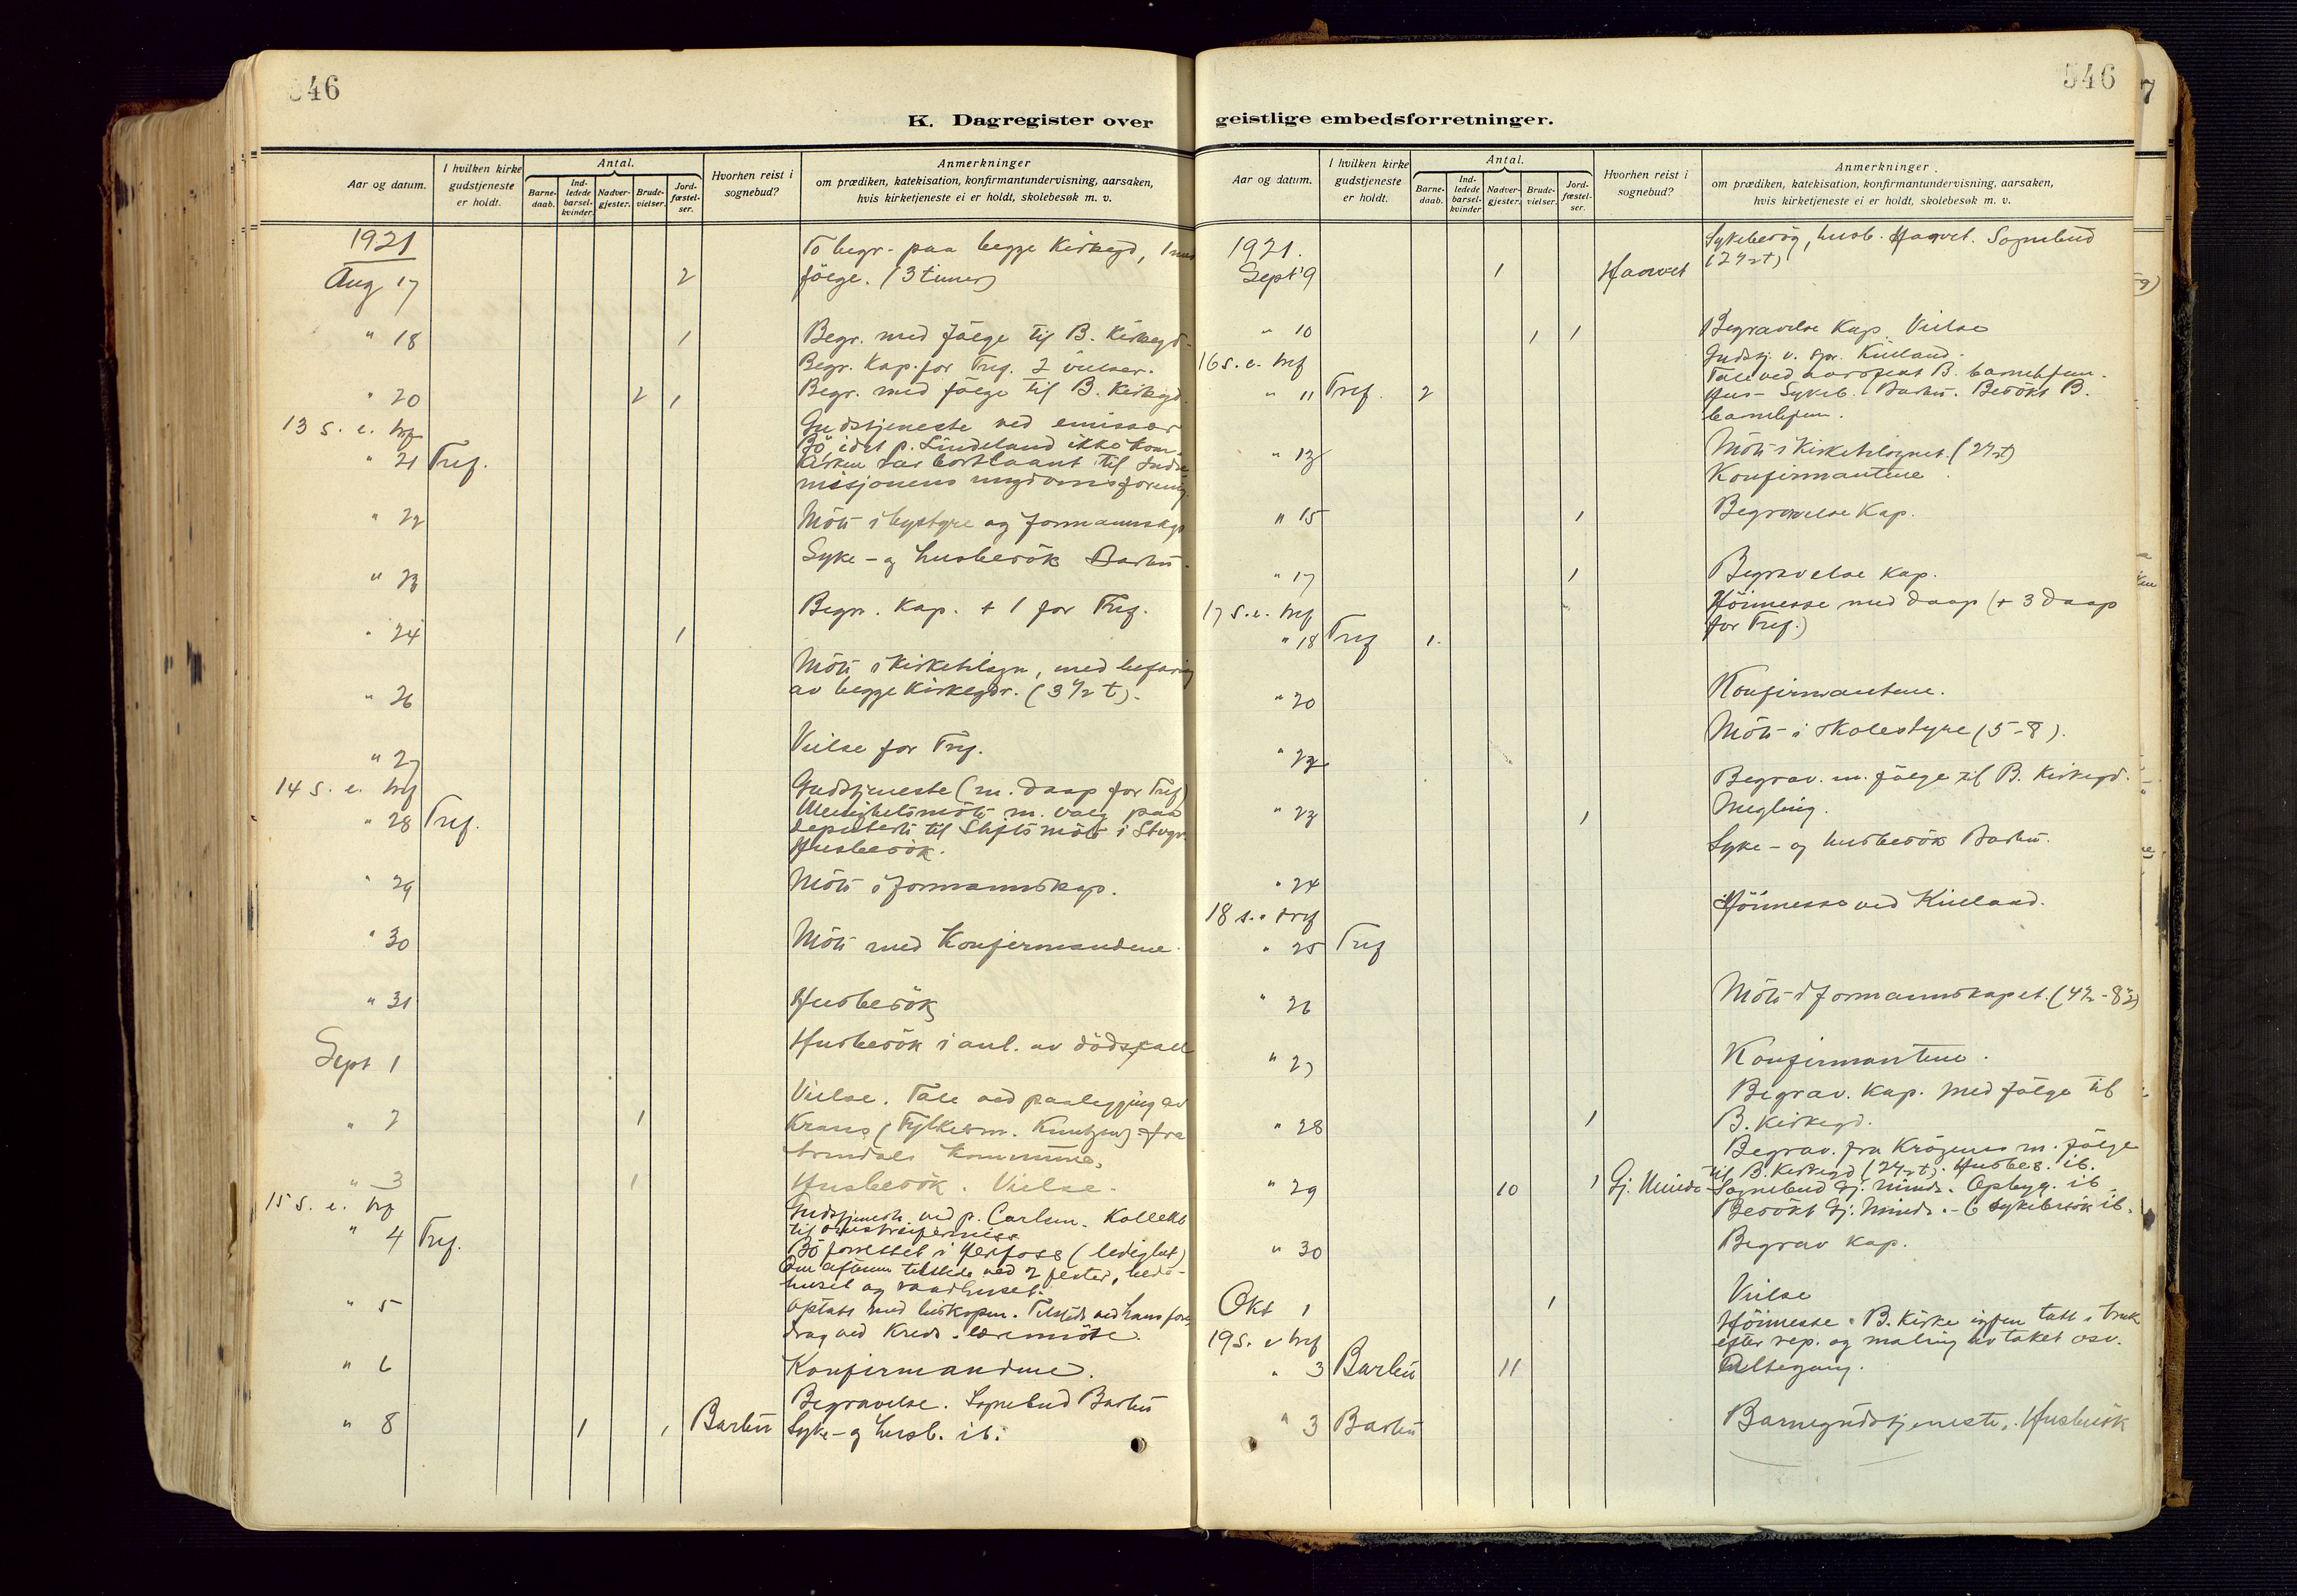 546
K. Dagregister over
Aar og datum.
I hvilken kirke gudstjeneste er holdt.
Antal.
Barne-daab.
Ind-ledede barsel-kvinder.
Nadver-gjester.
Brude-vielser.
Jord-fæstel-ser.
Hvorhen reist i sognebud?
Anmerkninger
om prædiken, katekisation, konfirmantundervisning, aarsaken,
hvis kirketjeneste ei er holdt, skolebesøk m. v.
1921
To begr. paa begge Kirkegd, 1 med
Aug 17 2 følge. (3 timer)
" 18 1 Begr. med følge til B. Kirkegd.
Begr. Kap. for Tref. 2 vielser.
" 20 2 1 Begr. med følge til B. Kirkegd.
13 s. e. tref Gudstjeneste ved emissær
Bö idet p. Lindeland ikke kom.
" 21 Tref. Kirken var bortlaant til Indre
misjonens ungdomsforening
" 22 Möte i bystyre og formannskap
" 23 Syke- og husbesök Barbu.
" 24 1 Begr. Kap. + 1 for Tref.
Möte i Kirketilsyn, med befaring
" 26 av begge Kirkegdr. (3 1/2 t).
" 27 Vielse for Tref.
14 s. e. tref Gudstjeneste (m. daap for Tref)
Menighetsmöte m. valg paa
" 28 Tref. deputerte til Stiftsmöte i
Husbesök.
" 29 Möte i formannskap.
" 30 Möte med Konfirmandene.
" 31 Husbesök
Sept 1 Husbesök i anl. av dödsfall
Vielse. Tale ved paalegging av
" 2 1 Krans (Fylkesm. Kuntzen) fra
Arendals Kommune.
" 3 1 Husbesök. Vielse.
15 s. e. tref Gudstjeneste ved p. Carlsen. Kollekt
til
" 4 Tref. Bö forrettet i Herefoss (ledighet)
Om aftenen tilstede ved 2 fester, bede-
huset og raadhuset.
" 5 optatt med biskopen. Tilstede ved hans fore
drag ved Kreds-læremöte.
" 6 Konfirmandene.
Begravelse. Sognebud Barbu
" 8 1 1 Barbu Syke- og husb. ib.
546
geistlige embedsforretninger.
Aar og datum.
I hvilken kirke gudstjeneste er holdt.
Antal.
Barne-daab.
Ind-ledede barsel-kvinder
Nadver-gjester.
Brude-vielser.
Jord-fæstel-ser.
Hvorhen reist i sognebud?
Anmerkninger.
om prædiken, katekisation, konfirmantundervisning, aarsaken,
hvis kirketjeneste ei er holdt, skolebesøk m. v.
1921. Sykebesög, husb. Haavet. Sognebud
Sept 9 1 Haavet (2 1/2 t)
" 10 1 1 Begravelse Kap. Vielse
16 s. e. tref Gudstj. v. spr. Kielland.
Tale ved B. barnehjem.
" 11 Tref. 2 Hus- Sykeb. Barbu. Besökt B.
barnehjem.
" 13 Möte i Kirketilsynet. (2 1/2 t)
Konfirmantene.
" 15 1 Begravelse Kap.
" 17 1 Begravelse Kap.
17 s. e. tref Höimesse med daap (+ 3 daap
" 18 Tref 1. for Tref.)
" 20 Konfirmantene.
" 22 Möte i skolestyre (5-8).
Begrav. m. følge til B. Kirkegd.
" 23 1 Megling.
" 24 Syke- og husbesök Barbu.
18 s. e. tref Höimesse ved Kielland.
" 25 Tref
" 26 Möte i formannskapet. (4 1/2 - 8 1/2)
" 27 Konfirmantene.
Begrav. Kap. med følge til
" 28 1 B. Kirkegd.
Begrav. fra Krögenes m. følge
til B. Kirkegd (2 1/2 t). Husbes. ib.
" 29 10 1 Gj. Minde Sognebud Gj. Minde. Opbyg. ib.
Besökt Gj. Minde. - 6 sykebesök ib.
" 30 Begrav Kap.
Okt 1 1 Vielse
Höimesse. B. Kirke igjen tatt i bruk
19 s. e tref efter rep. og maling av taket osv.
" 3 Barbu 11 Altergang.
" 3 Barbu Barnegudstjeneste. Husbesök